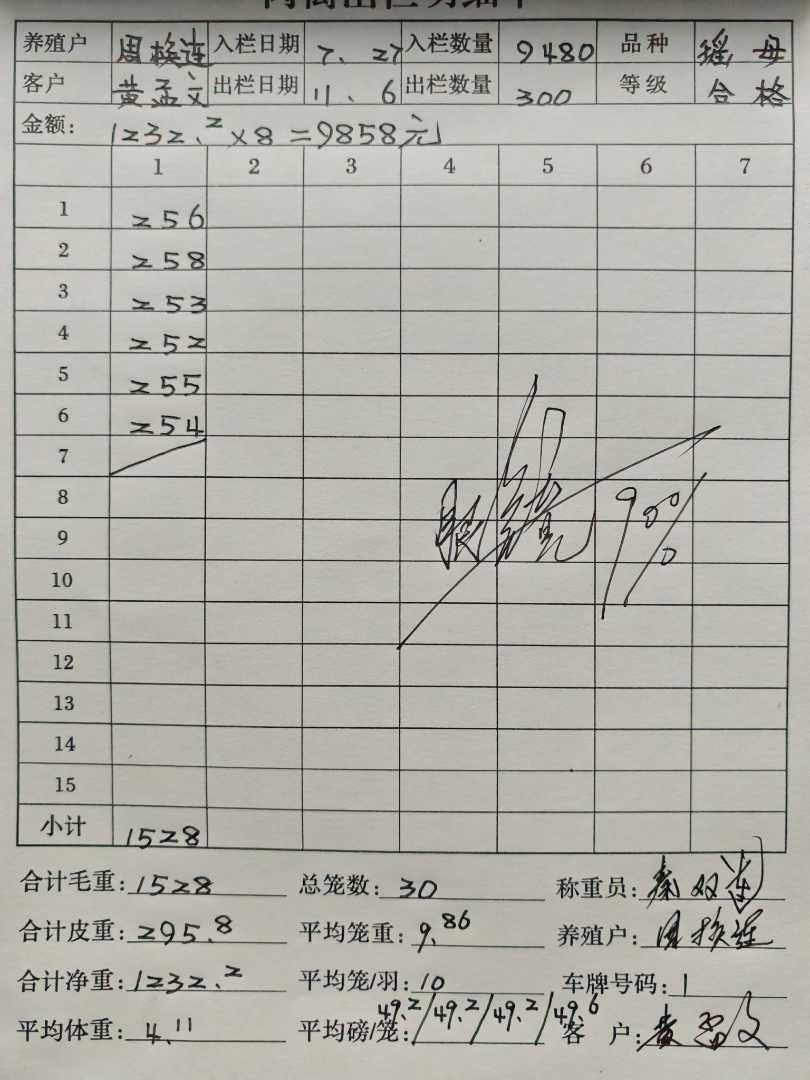 肉禽出栏明细单
养殖户 周换连 入栏日期 7. 27 入栏数量 9480 品种 瑶母
客户 黄孟文 出栏日期 11. 6 出栏数量 300 等级 合格
金额: 1232.2×8=9858元
1 2 3 4 5 6 7
1 256
2 258
3 253
4 252
5 255
6 254
7
8
9
10
11
12
13
14
15
小计 1528
合计毛重: 1528 总笼数: 30 称重员: 秦双连
合计皮重: 295.8 平均笼重: 9.86 养殖户: 周换连
合计净重: 1232.2 平均笼/羽: 10 车牌号码: 1
平均体重: 4.11 平均磅/笼: 49.2/49.2/49.2/49.6 客户: 黄孟文